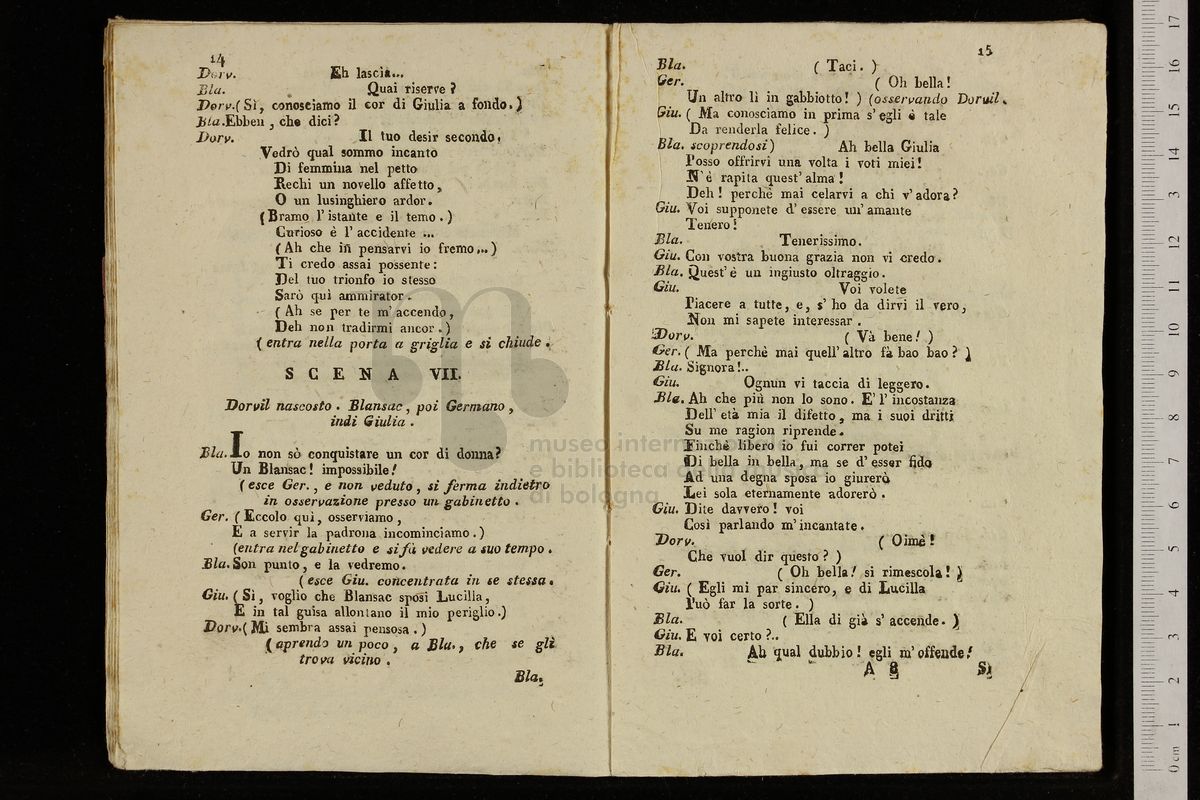 14
Dorv. Eh lascia...
Bla. Quai riserve?
Dorv. (Sì, conosciamo il cor di Giulia a fondo.)
Bla. Ebben, che dici?
Dorv. Il tuo desir secondo.
Vedrò qual sommo incanto
Di femmina nel petto
Rechi un novello affetto,
O un lusinghiero ardor.
(Bramo l'istante e il temo.)
Curioso è l'accidente ...
(Ah che in pensarvi io fremo...)
Ti credo assai possente:
Del tuo trionfo io stesso
Sarò quì ammirator.
(Ah se per te m'accendo,
Deh non tradirmi ancor.)
(entra nella porta a griglia e si chiude.
SCENA VII.
Dorvil nascosto. Blansac, poi Germano,
indi Giulia.
Bla. Io non sò conquistare un cor di donna?
Un Blansac! impossibile!
(esce Ger., e non veduto, si ferma indietro
in osservazione presso un gabinetto.
Ger. (Eccolo quì, osserviamo,
E a servir la padrona incominciamo.)
(entra nel gabinetto e si fà vedere a suo tempo.
Bla. Son punto, e la vedremo.
(esce Giu. concentrata in se stessa.
Giu. (Sì, voglio che Blansac sposi Lucilla,
E in tal guisa allontano il mio periglio.)
Dorv. (Mi sembra assai pensosa.)
(aprendo un poco, a Bla., che se gli
trova vicino.
Bla.
15
Bla. (Taci.)
Ger. (Oh bella!
Un altro lì in gabbiotto!) (osservando Dorvil.
Giu. (Ma conosciamo in prima s'egli è tale
Da renderla felice.)
Bla. scoprendosi) Ah bella Giulia
Posso offrirvi una volta i voti miei!
N'è rapita quest'alma!
Deh! perchè mai celarvi a chi v'adora?
Giu. Voi supponete d'essere un'amante
Tenero!
Bla. Tenerissimo.
Giu. Con vostra buona grazia non vi credo.
Bla. Quest'è un ingiusto oltraggio.
Giu. Voi volete
Piacere a tutte, e, s'ho da dirvi il vero,
Non mi sapete interessar.
Dorv. (Và bene!)
Ger. (Ma perchè mai quell'altro fà bao bao?)
Bla. Signora!..
Giu. Ognun vi taccia di leggero.
Bla. Ah che più non lo sono. E' l'incostanza
Dell'età mia il difetto, ma i suoi dritti
Su me ragion riprende.
Finchè libero io fui correr potei
Di bella in bella, ma se d'esser fido
Ad una degna sposa io giurerò
Lei sola eternamente adorerò.
Giu. Dite davvero! voi
Così parlando m'incantate.
Dorv. (Oimè!
Che vuol dir questo?)
Ger. (Oh bella! si rimescola!)
Giu. (Egli mi par sincero, e di Lucilla
Può far la sorte.)
Bla. (Ella di già s'accende.)
Giu. E voi certo?..
Bla. Ah qual dubbio! egli m'offende!
A 8 Sì
museo internazionale
e biblioteca della musica
di bologna
0 cm 1 2 3 4 5 6 7 8 9 10 11 12 13 14 15 16 17